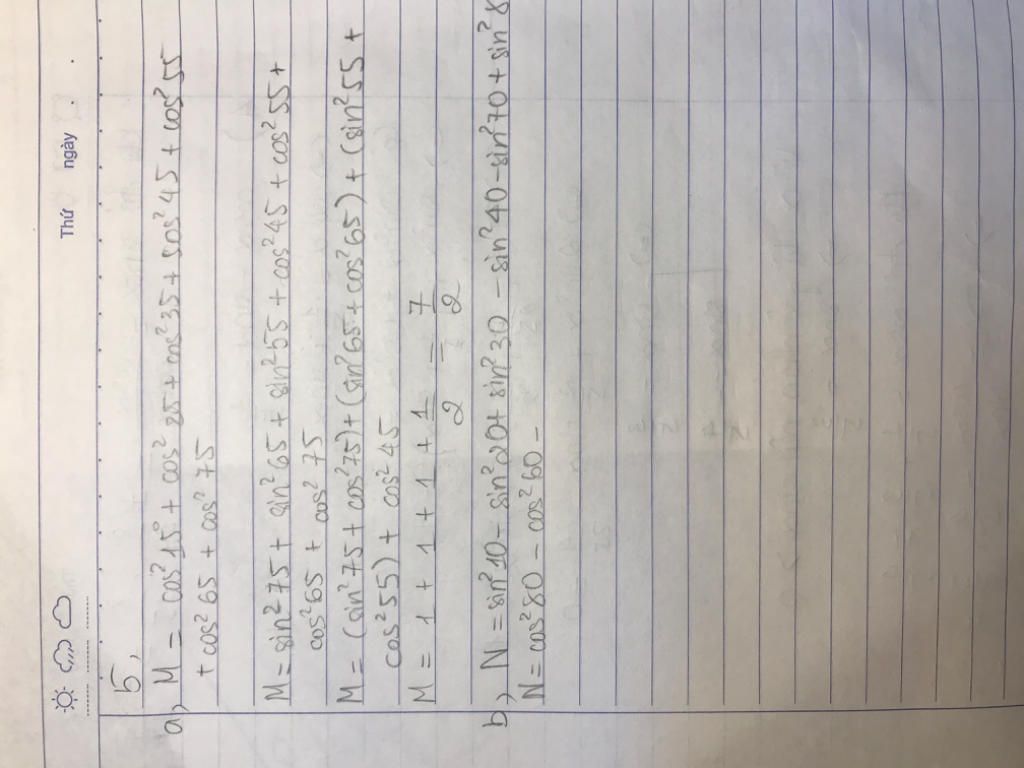 Thứ ngày
5,
a) M = cos²15° + cos² 25 + cos²35 + cos²45 + cos²55
+ cos²65 + cos²75
M = sin²75 + sin²65 + sin²55 + cos²45 + cos²55 +
cos²65 + cos²75
M = (sin²75 + cos²75) + (sin²65 + cos²65) + (sin²55 +
cos²55) + cos²45
M = 1 + 1 + 1 + 1/2 = 7/2
b) N = sin²10 - sin²20 + sin²30 - sin²40 - sin²70 + sin²8
N = cos²80 - cos²60 -